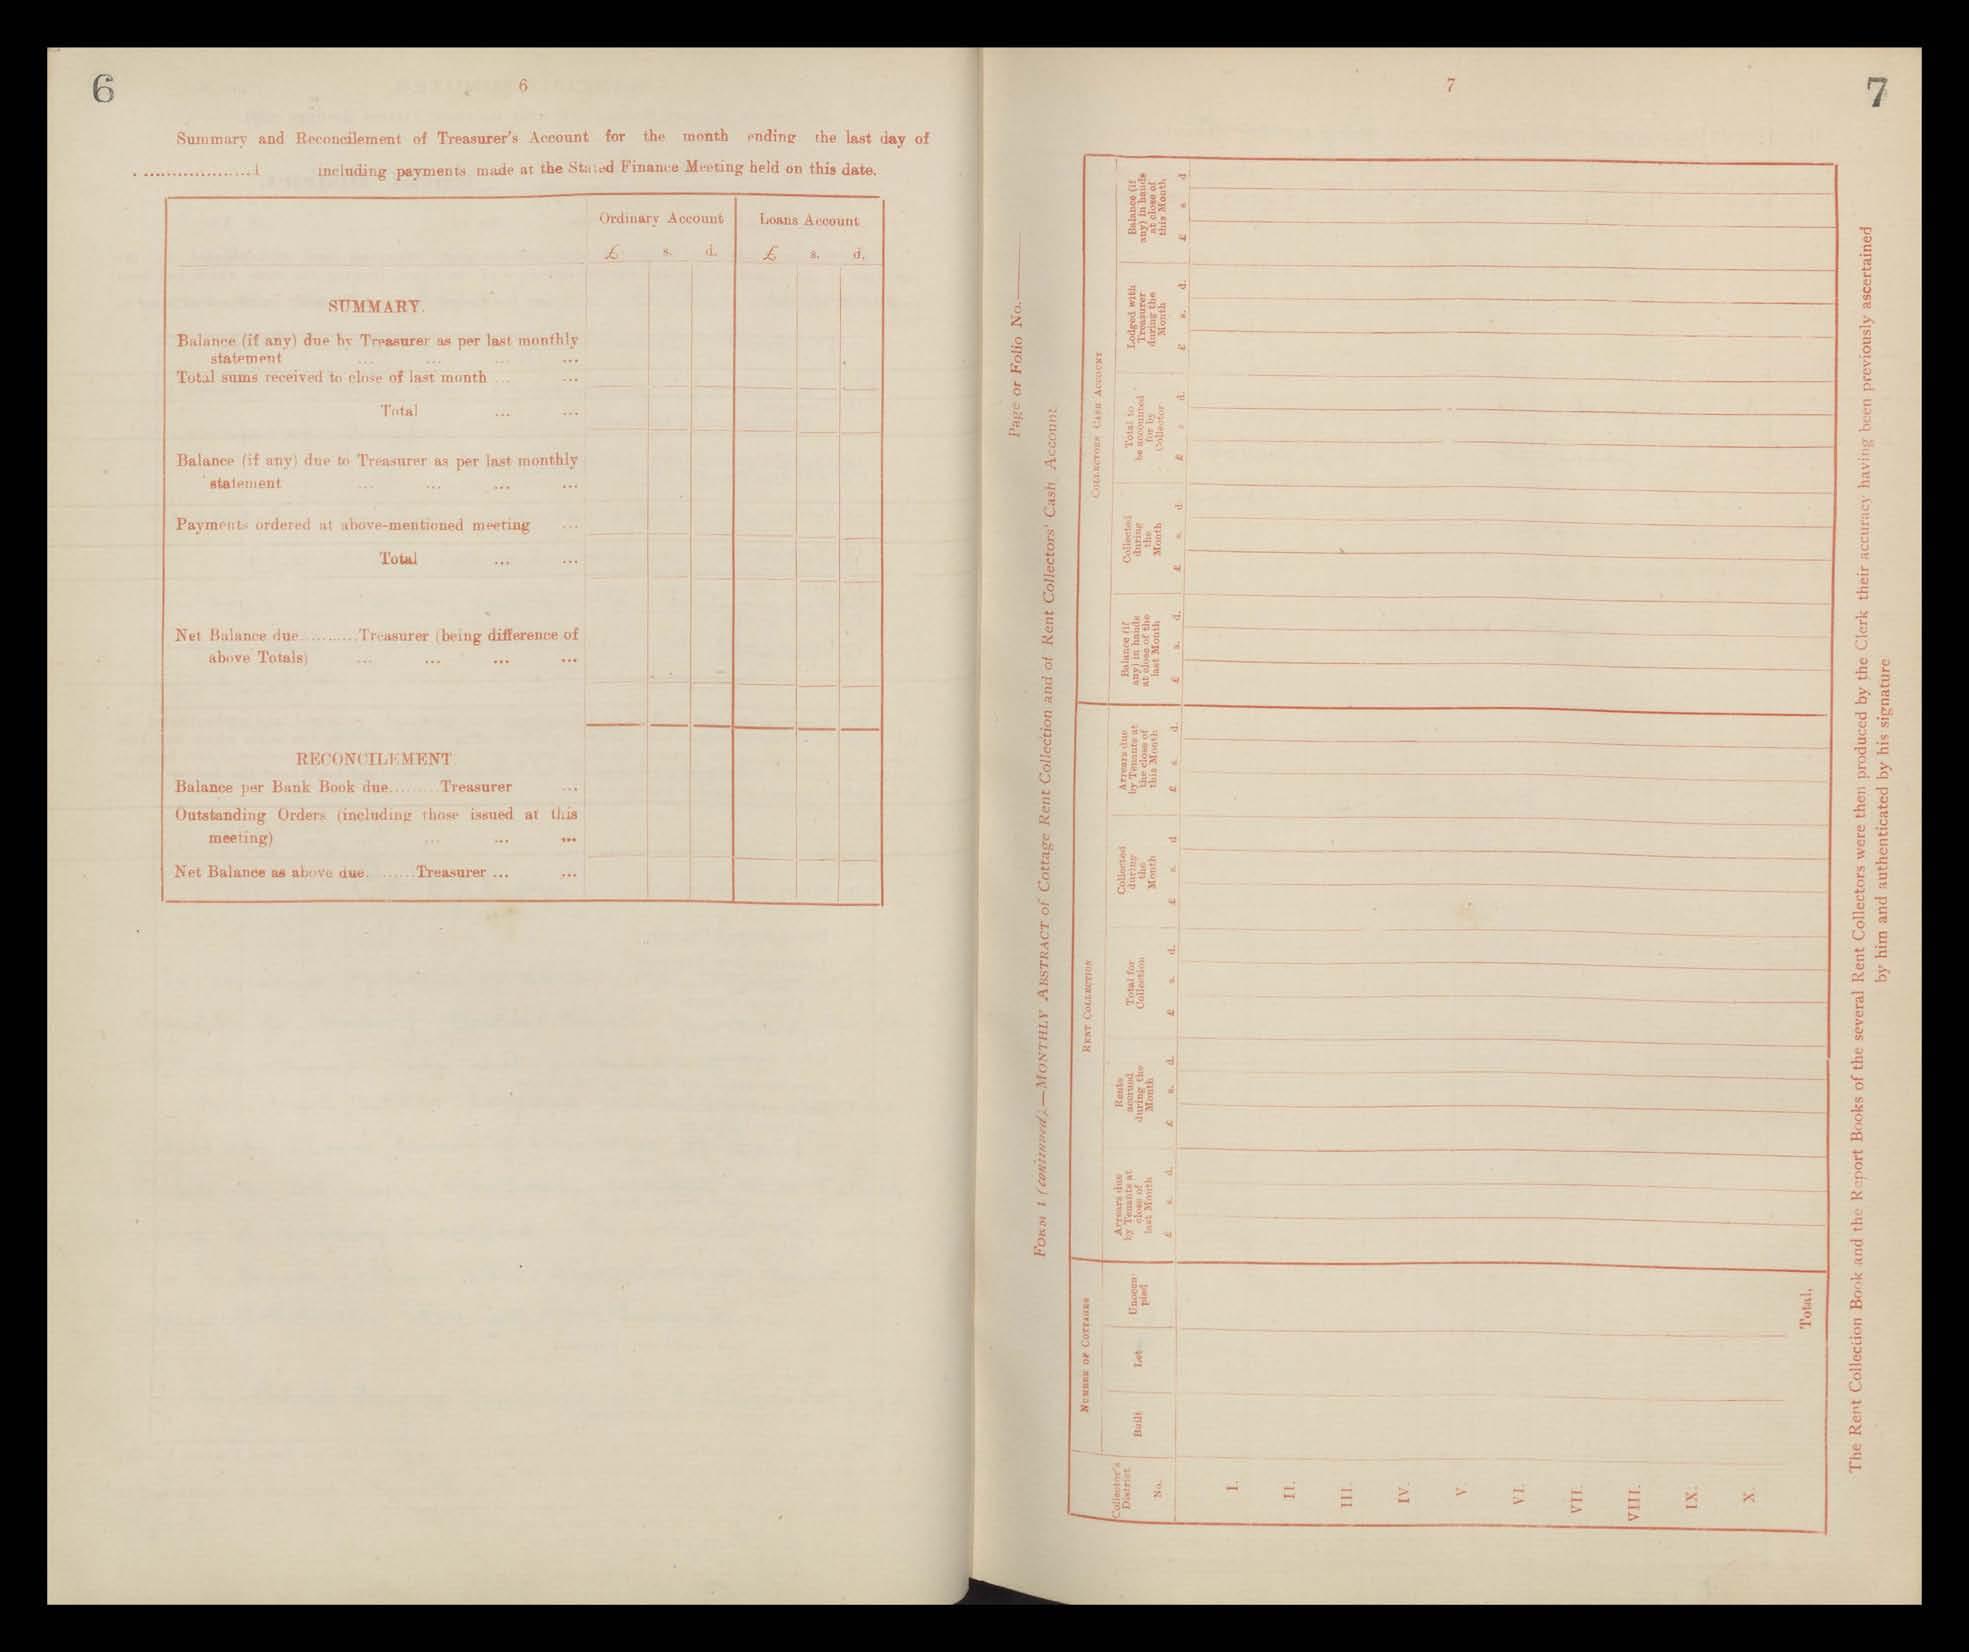 6
6
Summary and Reconcilement of Treasurer's Account for the month ending the last day of
....................1 including payments made at the Stated Finance Meeting held on this date.
Ordinary Account Loans Account
£ s. d. £ s. d.
SUMMARY.
Balance (if any) due by Treasurer as per last monthly
statement ... ... ... ...
Total sums received to close of last month ... ...
Total ... ...
Balance (if any) due to Treasurer as per last monthly
statement ... ... ... ...
Payments ordered at above-mentioned meeting ...
Total ... ...
Net Balance due...........Treasurer (being difference of
above Totals) ... ... ... ...
RECONCILEMENT
Balance per Bank Book due.........Treasurer ...
Outstanding Orders (including those issued at this
meeting) ... ... ...
Net Balance as above due.........Treasurer ... ...
7
7
Page or Folio No.
FORM 1 (continued).—MONTHLY ABSTRACT of Cottage Rent Collection and of Rent Collectors' Cash Account
NUMBER OF COTTAGES RENT COLLECTION COLLECTORS CASH ACCOUNT
Collector's
District
No.
Built
Let
Unoccu-
pied
Arrears due
by Tenants at
close of
last Month
£ s. d.
Rents
accrued
during the
Month
£ s. d.
Total for
Collection
£ s. d.
Collected
during
the
Month
£ s. d
Arrears due
by Tenants at
the close of
this Month
£ s. d.
Balance (if
any) in hands
at close of the
last Month
£ s. d.
Collected
during
the
Month
£ s. d
Total to
be accounted
for by
Collector
£ s d.
Lodged with
Treasurer
during the
Month
£ s. d.
Balance (if
any) in hands
at close of
this Month
£ s. d
I.
II.
III.
IV.
V.
VI.
VII.
VIII.
IX.
X.
Total,
The Rent Collection Book and the Report Books of the several Rent Collectors were then produced by the Clerk their accuracy having been previously ascertained
by him and authenticated by his signature